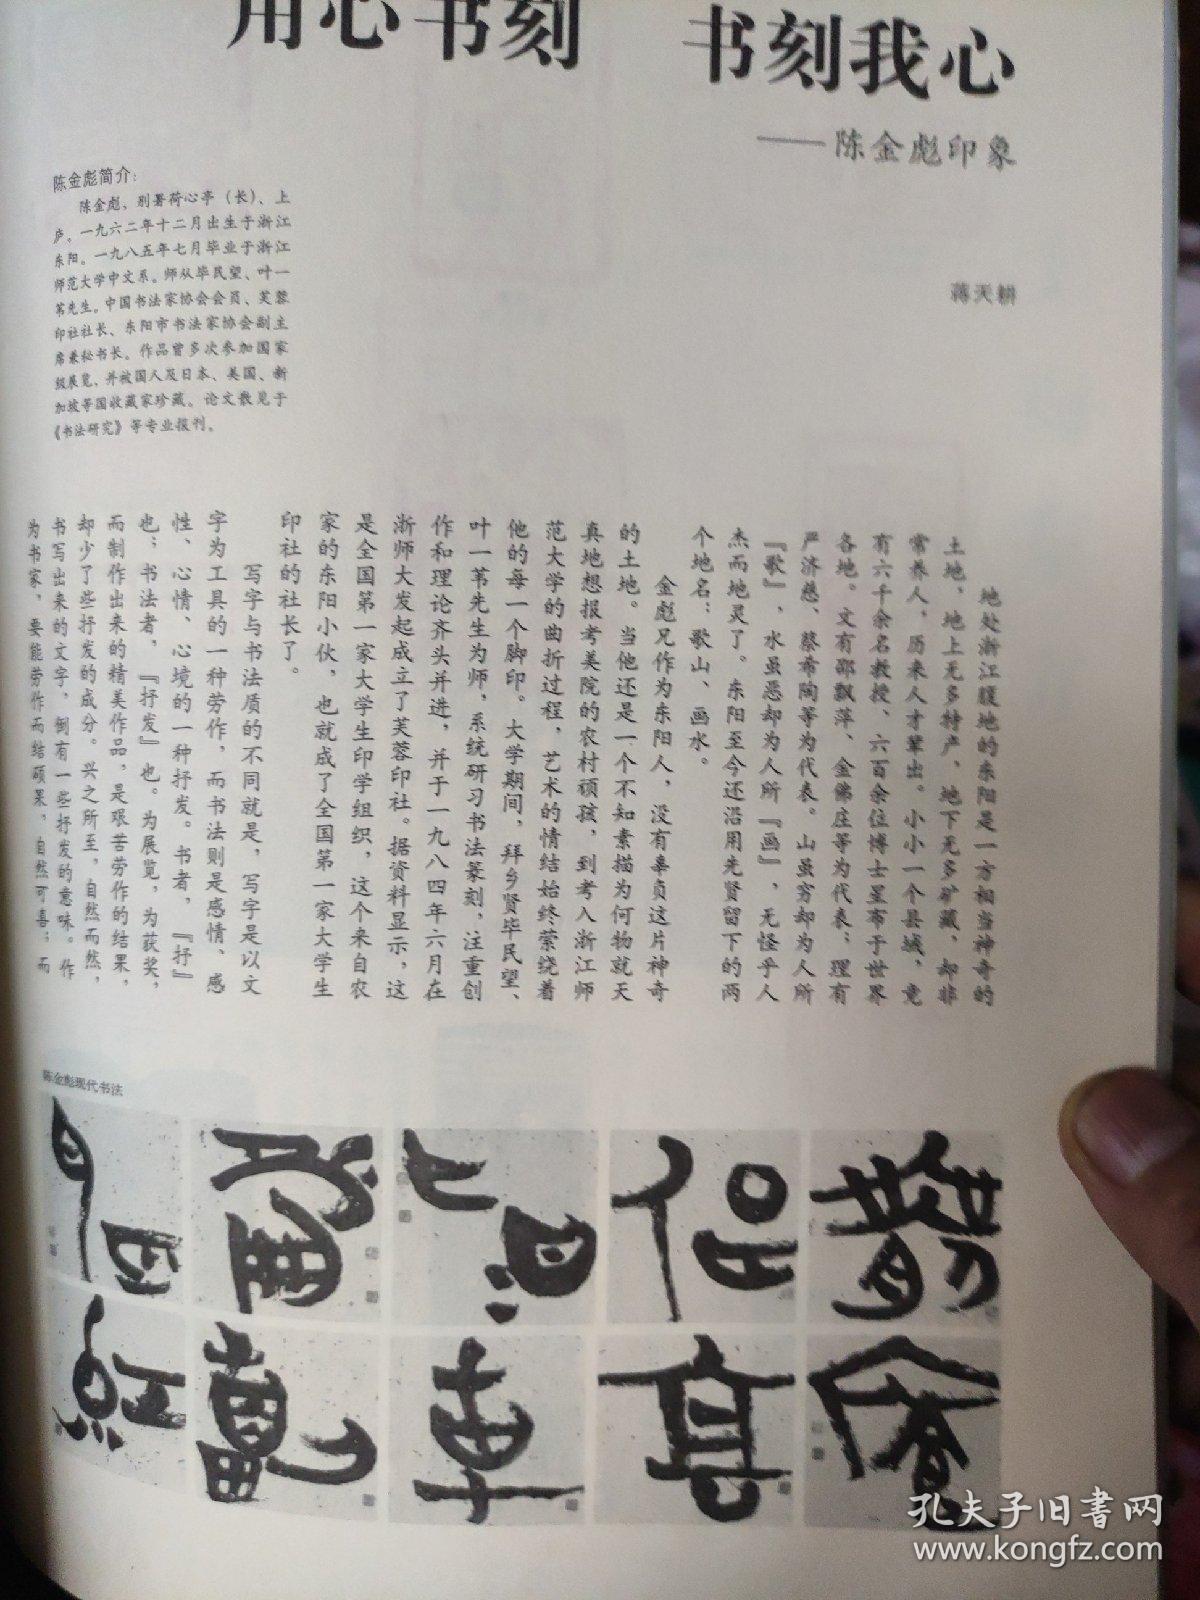 用心书刻 书刻我心
——陈金彪印象
蒋天耕
陈金彪简介:
陈金彪、别署荷心亭（长）、上
庐。一九六二年十二月出生于浙江
东阳。一九八五年七月毕业于浙江
师范大学中文系。师从毕民望、叶一
苇先生。中国书法家协会会员、芙蓉
印社社长、东阳市书法家协会副主
席兼秘书长。作品曾多次参加国家
级展览，并被国人及日本、美国、新
加坡等国收藏家珍藏。论文散见于
《书法研究》等专业报刊。
地处浙江腹地的东阳是一方相当神奇的
土地，地上无多特产，地下无多矿藏，却非
常养人，历来人才辈出。小小一个县城，竟
有六千余名教授、六百余位博士星布于世界
各地。文有邵飘萍、金佛庄等为代表；理有
严济慈、蔡希陶等为代表。山虽穷却为人所
『歌』，水虽恶却为人所『画』，无怪乎人
杰而地灵了。东阳至今还沿用先贤留下的两
个地名：歌山、画水。
金彪兄作为东阳人，没有辜负这片神奇
的土地。当他还是一个不知素描为何物就天
真地想报考美院的农村顽孩，到考入浙江师
范大学的曲折过程，艺术的情结始终萦绕着
他的每一个脚印。大学期间，拜乡贤毕民望、
叶一苇先生为师，系统研习书法篆刻，注重创
作和理论齐头并进，并于一九八四年六月在
浙师大发起成立了芙蓉印社。据资料显示，这
是全国第一家大学生印学组织，这个来自农
家的东阳小伙，也就成了全国第一家大学生
印社的社长了。
写字与书法质的不同就是，写字是以文
字为工具的一种劳作，而书法则是感情、感
性、心情、心境的一种抒发。书者，『抒』
也；书法者，『抒发』也。为展览，为获奖，
而制作出来的精美作品，是艰苦劳作的结果，
却少了些抒发的成分。兴之所至，自然而然，
书写出来的文字，倒有一些抒发的意味。作
为书家，要能劳作而结硕果，自然可喜；而
陈金彪现代书法
孔夫子旧书网
www.kongfz.com